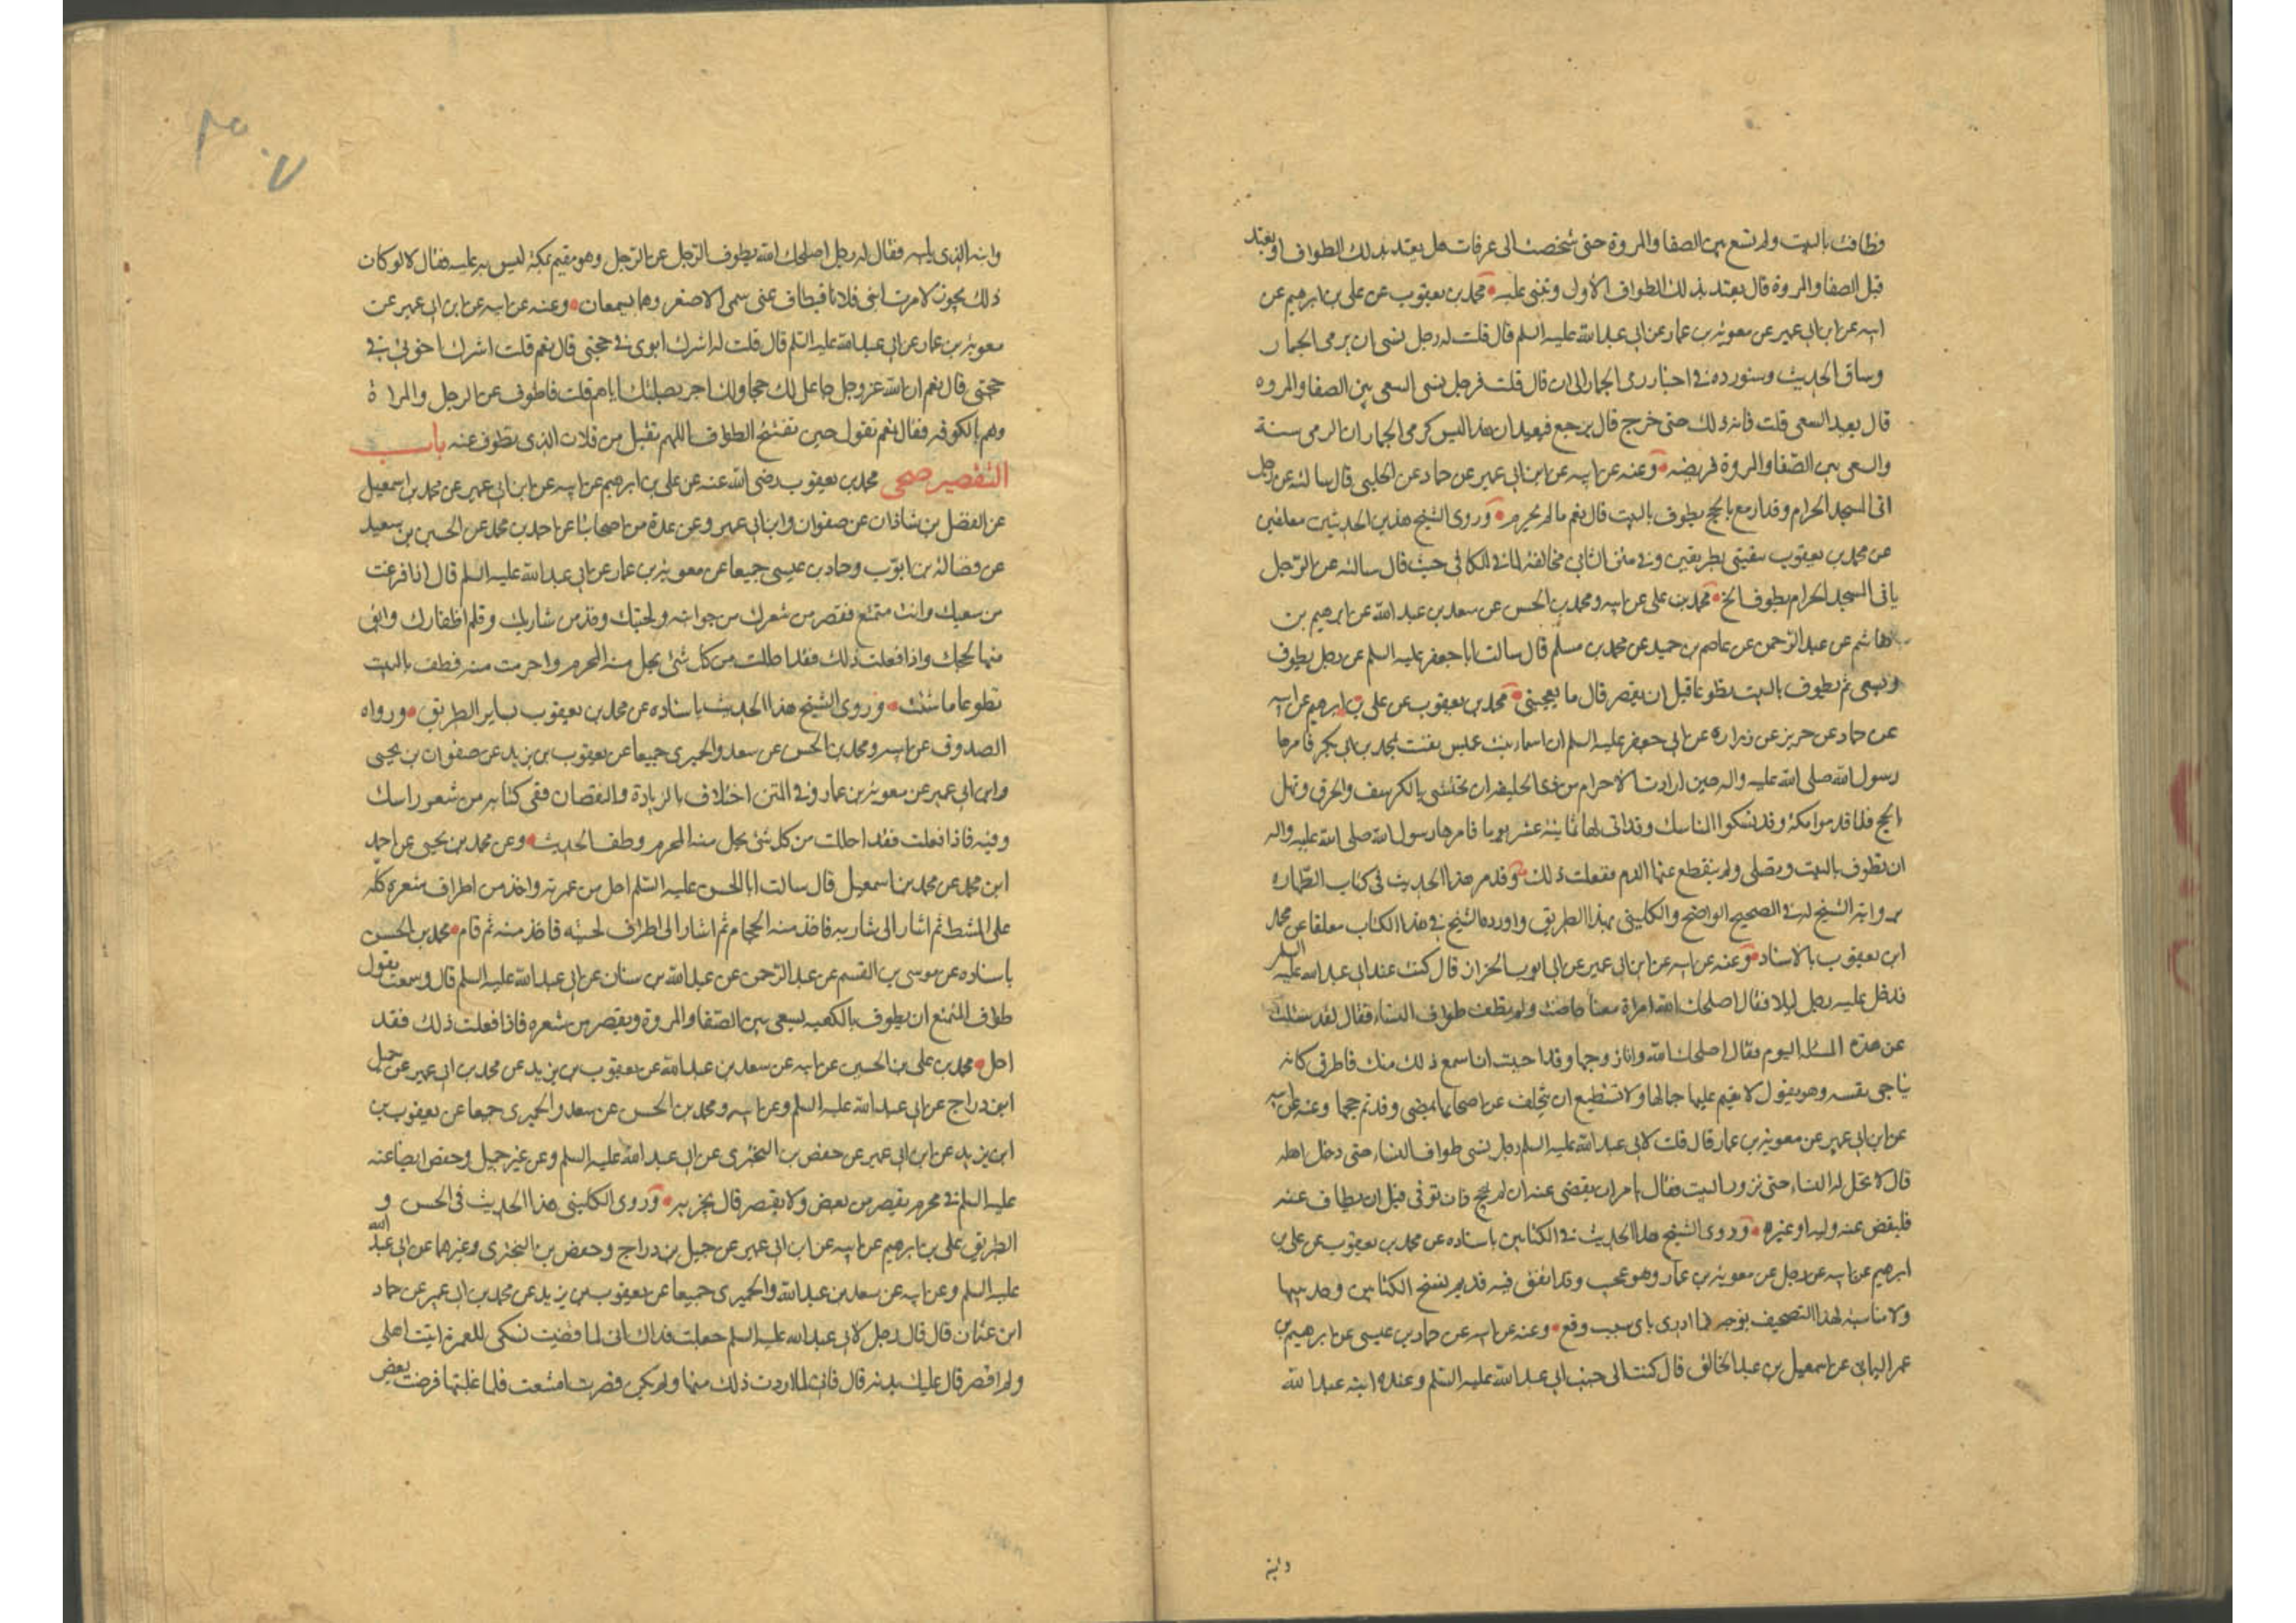 وطافت بالبيت ولم تسع بين الصفا والمروة حتى شخصت الى عرفات هل يعتد بذلك الطواف او يعتد
قبل الصفا والمروة قال يعتد بذلك الطواف الأول وتبنى عليه محمد بن يعقوب عن على بن ابرهيم عن
ابيه عن ابن ابى عمير عن معوية بن عمار عن ابى عبد الله عليه السلم قال قلت له رجل نسى ان يرمى الجمار
وساق الحديث وسنورده فى اخبار رمى الجمار الى ان قال قلت فرجل نسى السعى بين الصفا والمروه
قال يعيد السعى قلت فاته ذلك حتى خرج قال يرجع فيعيد ان هذا ليس كرمى الجمار ان الرمى سنة
والسعى بين الصفا والمروة فريضه وعنه عن ابيه عن ابن ابى عمير عن حماد عن الحلبى قال سالته عن رجل
اتى المسجد الحرام وقد ازمع بالحج يطوف بالبيت قال نعم ما لم يحرم وروى الشيخ هذين الحديثين معلقين
عن محمد بن يعقوب ببقيتى الطريقين وفى متن الثانى مخالفة لما فى الكافى حيث قال سالته عن الرجل
ياتى المسجد الحرام يطوف الخ محمد بن على عن ابيه ومحمد بن الحسن عن سعد بن عبد الله عن ابرهيم بن
هاشم عن عبد الرحمن عن عاصم بن حميد عن محمد بن مسلم قال سالت ابا جعفر عليه السلم عن رجل يطوف
ويسعى ثم يطوف بالبيت تطوعا قبل ان يقصر قال ما يعجبنى محمد بن يعقوب عن على بن ابرهيم عن ابيه
عن حماد عن حريز عن زراره عن ابى جعفر عليه السلم ان اسماء بنت عميس نفست بمحمد بن ابى بكر فامرها
رسول الله صلى الله عليه واله حين ارادت الاحرام من ذى الحليفه ان تحتشى بالكرسف والخرق وتهل
بالحج فلما قدموا مكة وقد نسكوا المناسك وقد اتى لها ثمانية عشر يوما فامرها رسول الله صلى الله عليه واله
ان تطوف بالبيت وتصلى ولم ينقطع عنها الدم ففعلت ذلك وقد مر هذا الحديث فى كتاب الطهاره
برواية الشيخ له فى الصحيح الواضح والكلينى بهذا الطريق واورده الشيخ فى هذا الكتاب معلقا عن محمد
ابن يعقوب بالاسناد وعنه عن ابيه عن ابن ابى عمير عن ابى ايوب الخزاز قال كنت عند ابى عبد الله عليه السلم
فدخل عليه رجل ليلا فقال اصلحك الله امراة معنا حاضت ولم تطف طواف النساء فقال لقد سئلت
عن هذه المسئله اليوم فقال اصلحك الله وانا زوجها وقد احببت ان اسمع ذلك منك فاطرق كانه
يناجى نفسه وهو يقول لا يقيم عليها جمالها ولا تستطيع ان تتخلف عن اصحابها تمضى وقد تم حجها وعنه عن ابيه
عن ابن ابى عمير عن معوية بن عمار قال قلت لابى عبد الله عليه السلم رجل نسى طواف النساء حتى دخل اهله
قال لا تحل له النساء حتى يزور البيت وقال يامر ان يقضى عنه ان لم يحج فان توفى قبل ان يطاف عنه
فليقض عنه وليه او غيره وروى الشيخ هذا الحديث فى الكتابين باسناده عن محمد بن يعقوب عن على بن
ابرهيم عن ابيه عن رجل عن معوية بن عمار وهو عجب وقد اتفق فيه قديم نسخ الكتابين وحديثها
ولا مناسبة لهذا التصحيف بوجه فما ادرى باى سبب وقع وعنه عن ابيه عن حماد بن عيسى عن ابرهيم بن
عمر اليمانى عن اسمعيل بن عبد الخالق قال كنت الى جنب ابى عبد الله عليه السلم وعنده ابنه عبد الله
وابنه
وابنه الذى يليه فقال له رجل اصلحك الله يطوف الرجل عن الرجل وهو مقيم بمكة ليس به علة فقال لا لو كان
ذلك يجوز لامرت ابنى فلانا فيطاف عنى سمى الاصغر وهما يسمعان وعنه عن ابيه عن ابن ابى عمير عن
معوية بن عمار عن ابى عبد الله عليه السلم قال قلت له اشرك ابوى فى حجتى قال نعم قلت اشرك اخوتى فى
حجتى قال نعم ان الله عز وجل جاعل لك حجا ولك اجر بصلتك اياهم قلت فاطوف عن الرجل والمراة
وهم بالكوفه فقال نعم تقول حين تفتتح الطواف اللهم تقبل من فلان الذى تطوف عنه باب
التقصير صحى محمد بن يعقوب رضى الله عنه عن على بن ابرهيم عن ابيه عن ابن ابى عمير عن محمد بن اسمعيل
عن الفضل بن شاذان عن صفوان وابن ابى عمير وعن عدة من اصحابنا عن احمد بن محمد عن الحسين بن سعيد
عن فضالة بن ايوب وحماد بن عيسى جميعا عن معوية بن عمار عن ابى عبد الله عليه السلم قال اذا فرغت
من سعيك وانت متمتع فقصر من شعرك من جوانبه ولحيتك وخذ من شاربك وقلم اظفارك وابق
منها لحجك واذا فعلت ذلك فقد احللت من كل شئ يحل منه المحرم واحرمت منه فطف بالبيت
تطوعا ما شئت وروى الشيخ هذا الحديث باسناده عن محمد بن يعقوب بساير الطريق ورواه
الصدوق عن ابيه ومحمد بن الحسن عن سعد والحميرى جميعا عن يعقوب بن يزيد عن صفوان بن يحيى
وابن ابى عمير عن معوية بن عمار وفى المتن اختلاف بالزيادة والنقصان ففى كتابه من شعور راسك
وفيه فاذا فعلت فقد احللت من كل شئ يحل منه المحرم وطف الحديث وعن محمد بن يحيى عن احمد
ابن محمد عن محمد بن اسمعيل قال سالت ابا الحسن عليه السلم احل من عمرته واخذ من اطراف شعره كله
على المشط ثم اشار الى شاربه فاخذ منه الحجام ثم اشار الى اطراف لحيته فاخذ منه ثم قام محمد بن الحسن
باسناده عن موسى بن القسم عن عبد الرحمن عن عبد الله بن سنان عن ابى عبد الله عليه السلم قال وسمعته يقول
طواف المتمتع ان يطوف بالكعبه ليسعى بين الصفا والمروة ويقصر من شعره فاذا فعلت ذلك فقد
احل محمد بن على بن الحسين عن ابيه عن سعد بن عبد الله عن يعقوب بن يزيد عن محمد بن ابى عمير عن جميل
ابن دراج عن ابى عبد الله عليه السلم وعن ابيه ومحمد بن الحسن عن سعد والحميرى جميعا عن يعقوب بن
ابن يزيد عن ابن ابى عمير عن حفص بن البخترى عن ابى عبد الله عليه السلم وعن غير جميل وحفص ايضا عنه
عليه السلم فى محرم يقصر من بعض ولا يقصر قال يجزيه وروى الكلينى هذا الحديث فى الحسن و
الطريق على بن ابرهيم عن ابيه عن ابن ابى عمير عن جميل بن دراج وحفص بن البخترى وغيرهما عن ابى عبد الله
عليه السلم وعن ابيه عن سعد بن عبد الله والحميرى جميعا عن يعقوب بن يزيد عن محمد بن ابى عمير عن حماد
ابن عثمان قال قال رجل لابى عبد الله عليه السلم جعلت فداك انى لما قضيت نسكى للعمرة اتيت اهلى
ولم اقصر قال عليك بدنه قال فانى لما اردت ذلك منها ولم تكن قصرت امتنعت فلما غلبتها قرضت بعض